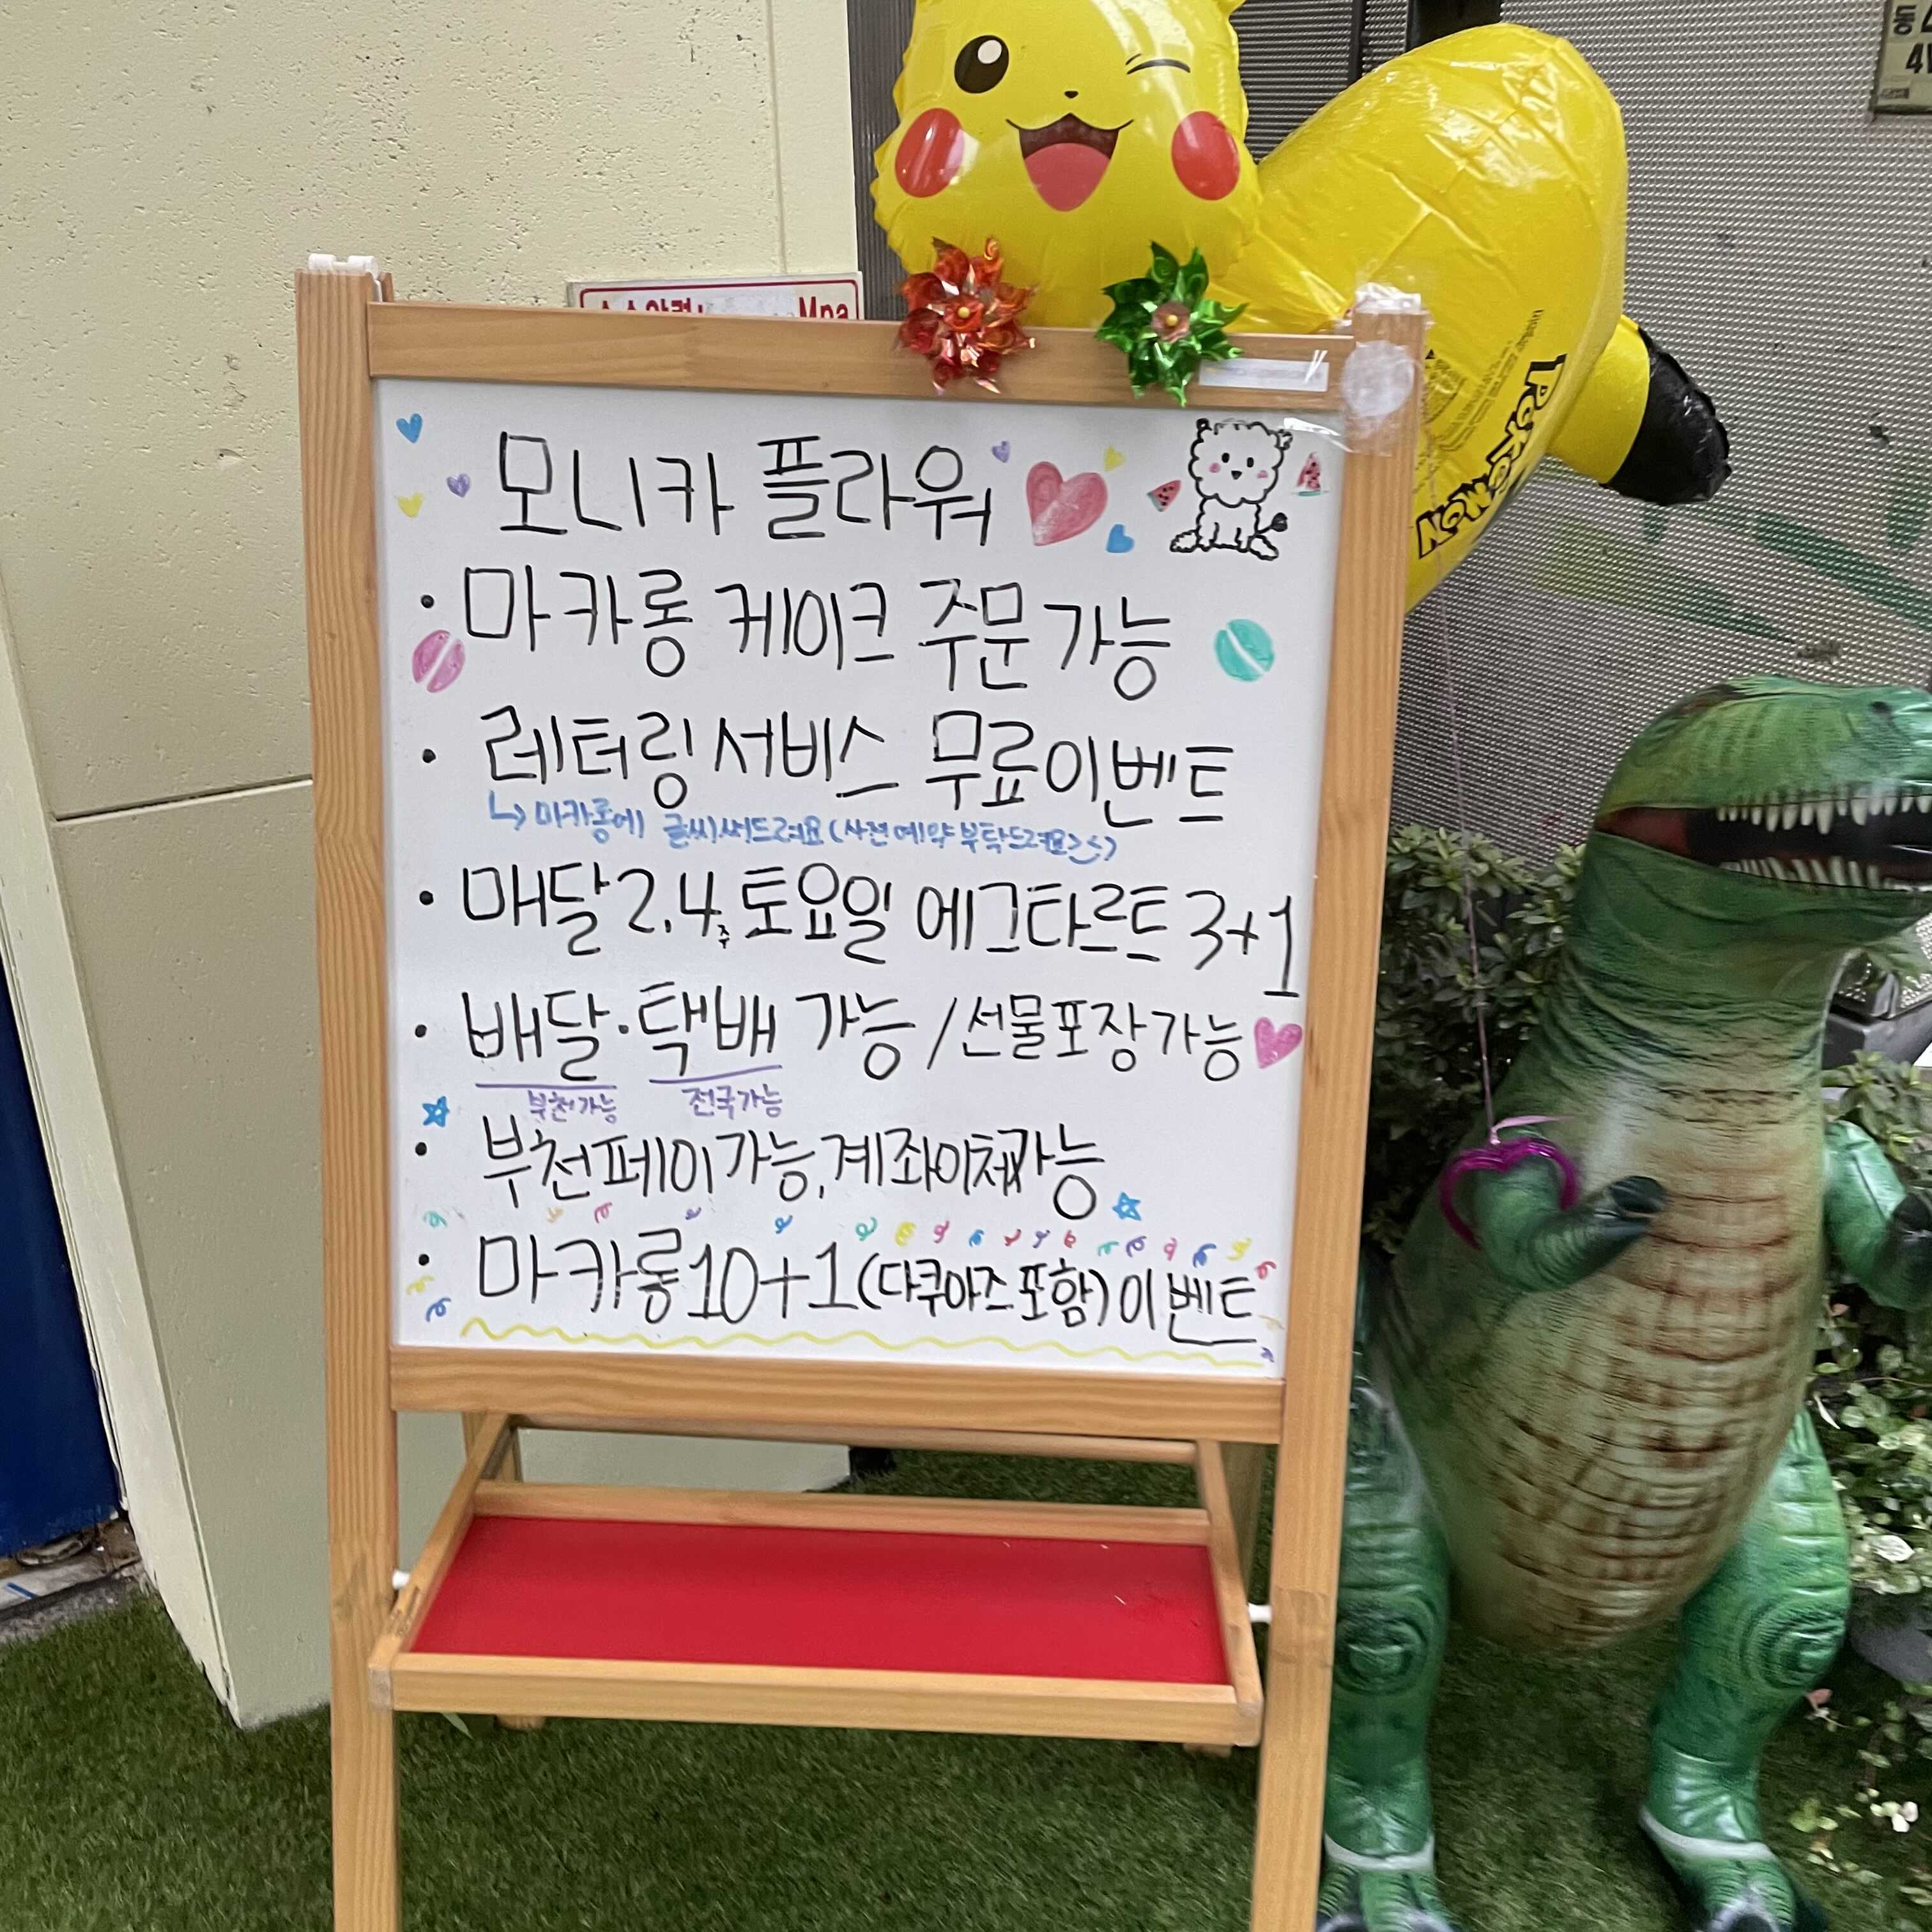 모니카 플라워
• 마카롱 케이크 주문 가능
• 레터링 서비스 무료 이벤트
↳ 마카롱에 글씨 써드려요 (사전 예약 부탁드려요>.<)
• 매달 2, 4주 토요일 에그타르트 3+1
• 배달·택배 가능 / 선물포장 가능
부천가능 전국가능
• 부천페이 가능, 계좌이체 가능
• 마카롱 10+1 (다쿠아즈 포함) 이벤트
POKéMON
Mpa